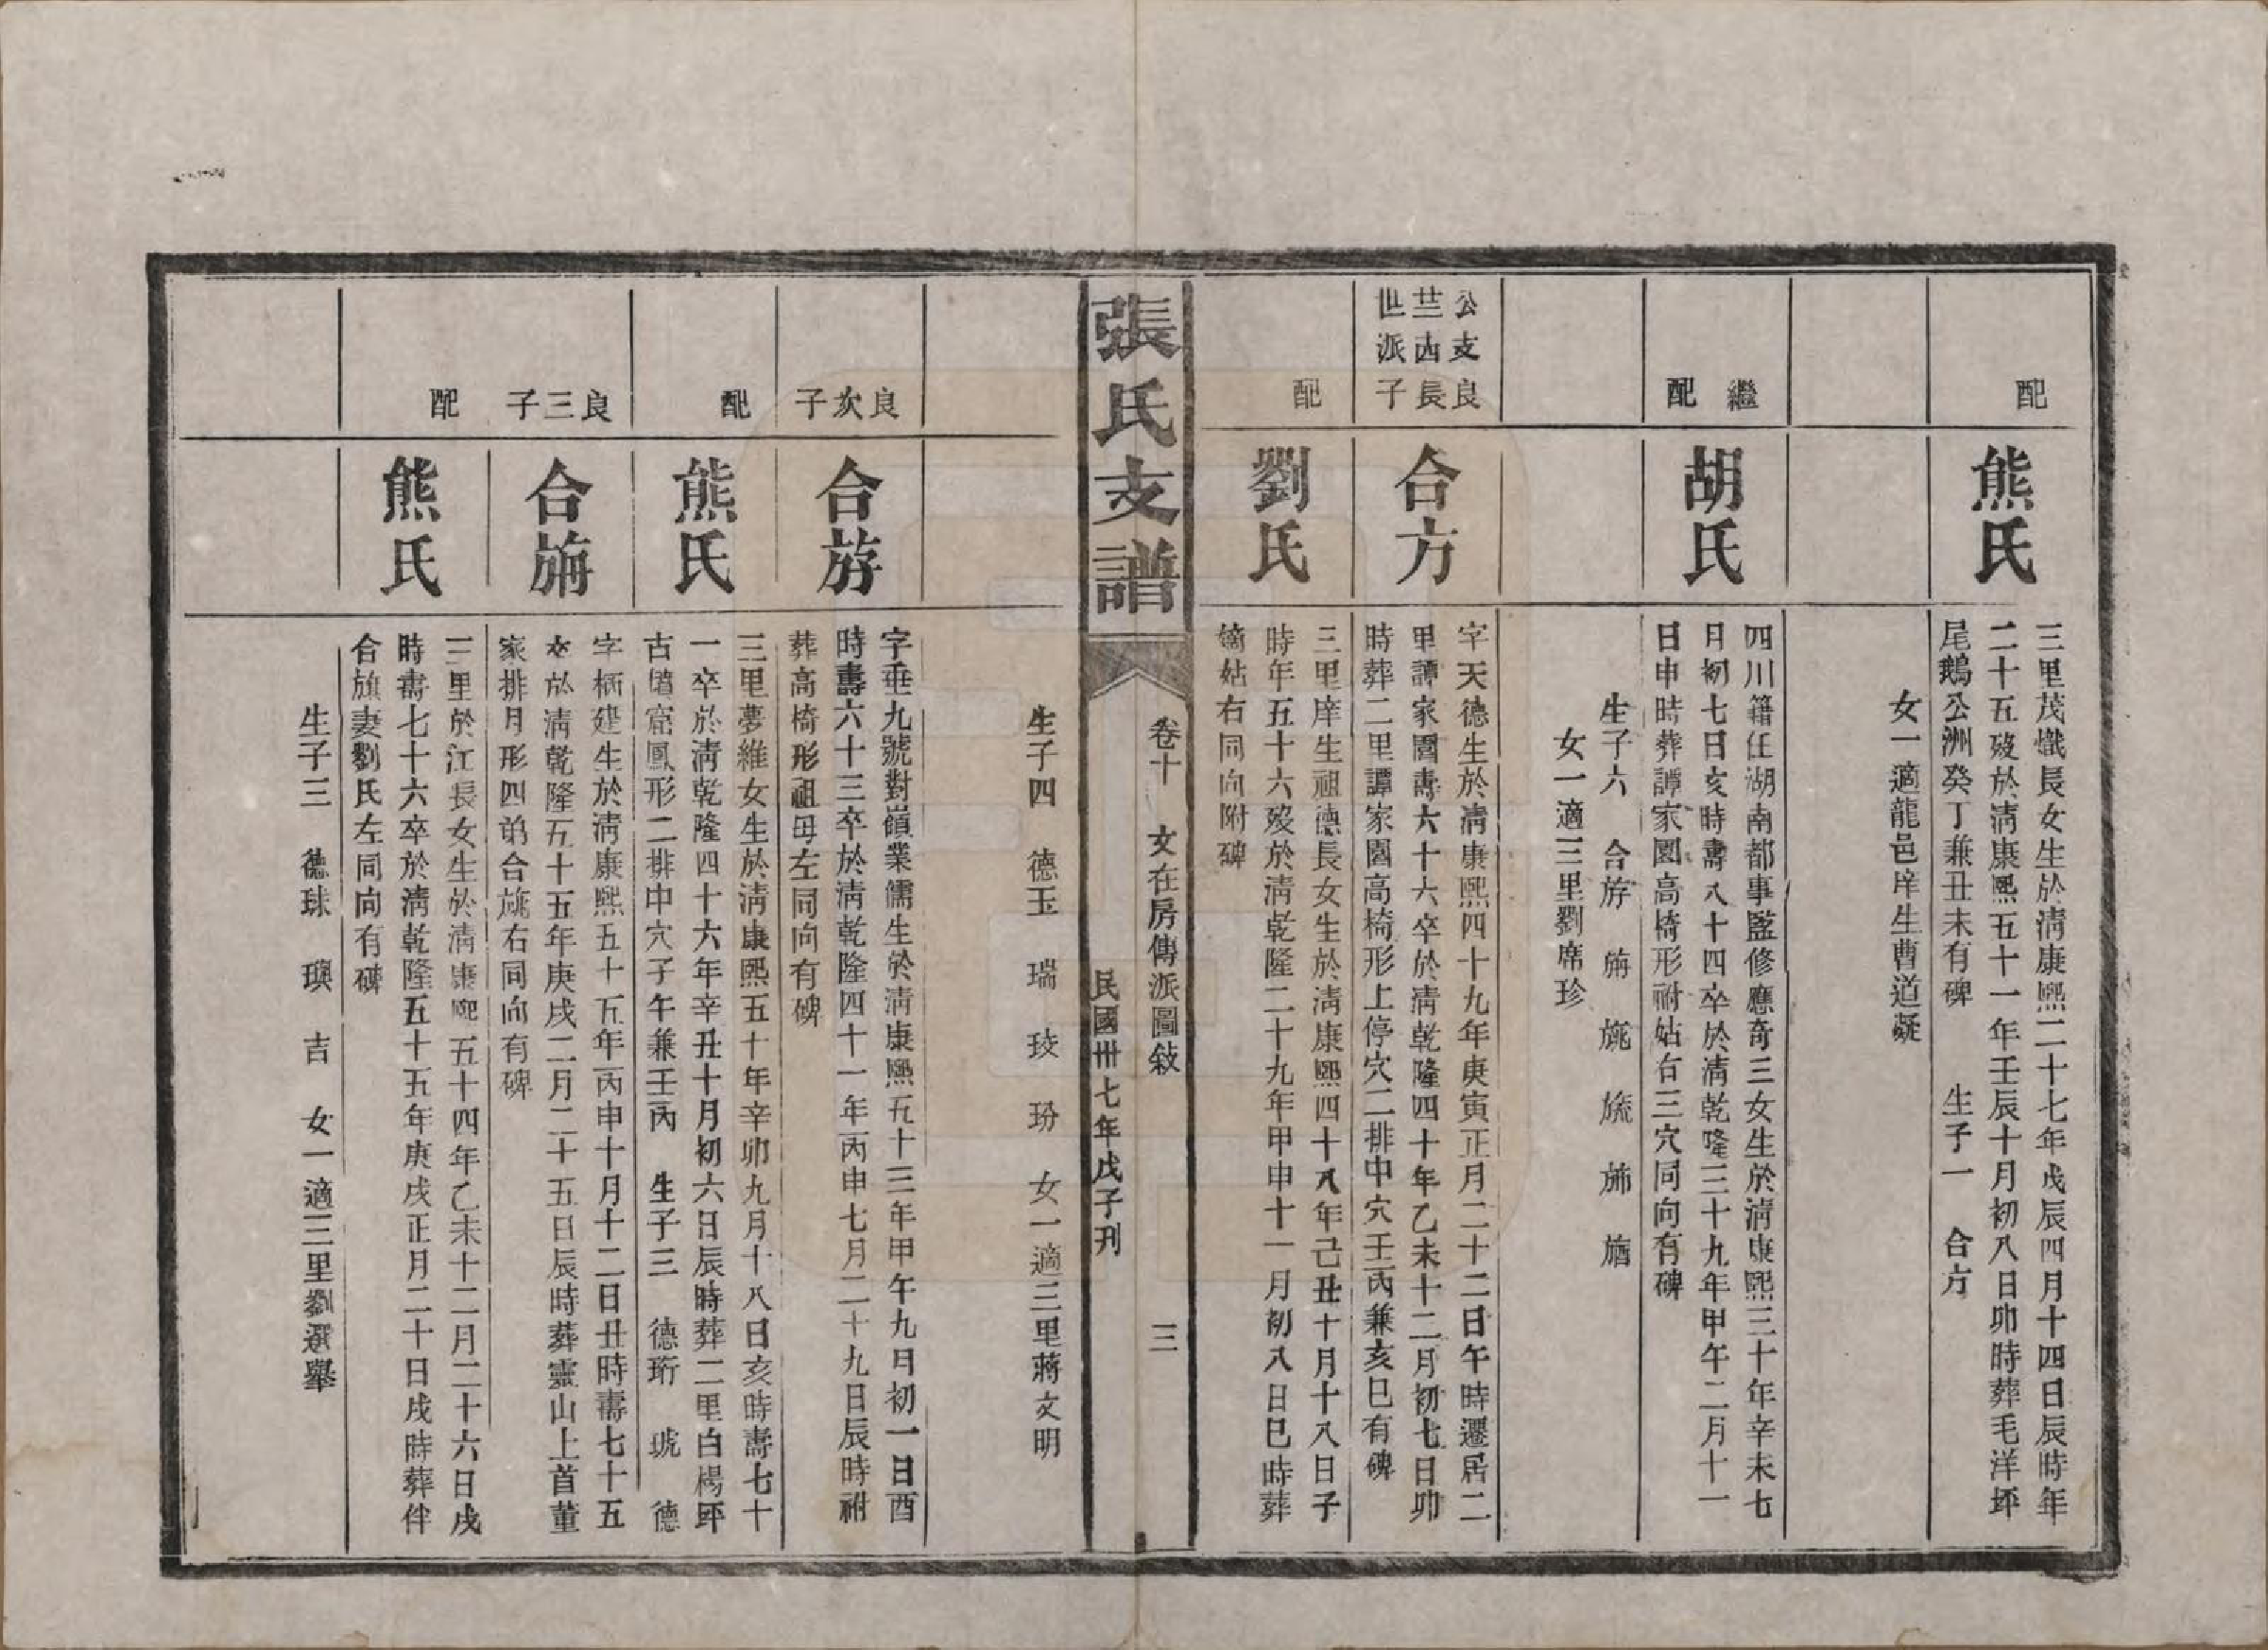 配
熊氏
三里茂熾長女生於淸康熙二十七年戊辰四月十四日辰時年
二十五歿於淸康熙五十一年壬辰十月初八日卯時葬毛洋坪
尾鵝公洲癸丁兼丑未有碑　生子一　合方
女一適龍邑庠生曹道凝
繼配
胡氏
四川籍任湖南都事監修應奇三女生於淸康熙三十年辛未七
月初七日亥時壽八十四卒於淸乾隆三十九年甲午二月十一
日申時葬譚家園高椅形祔姑右三穴同向有碑
生子六　合斿　旃　旐　旒　旆　旝
女一適三里劉席珍
公支良
芷西長
世派子
合方
字天德生於淸康熙四十九年庚寅正月二十二日午時遷居二
里譚家園壽六十六卒於淸乾隆四十年乙未十二月初七日卯
時葬二里譚家園高椅形上停穴二排中穴壬丙兼亥巳有碑
配
劉氏
三里庠生祖德長女生於淸康熙四十八年己丑十月十八日子
時年五十六歿於淸乾隆二十九年甲申十一月初八日巳時葬
嫡姑右同向附碑
張氏支譜
卷十　文在房傳派圖敍　三
民國卅七年戊子刋
生子四　德玉　瑞　玟　玢　女一適三里蔣文明
良次子
合斿
字垂九號對嶺業儒生於淸康熙五十三年甲午九月初一日酉
時壽六十三卒於淸乾隆四十一年丙申七月二十九日辰時祔
葬高椅形祖母左同向有碑
配
熊氏
三里夢維女生於淸康熙五十年辛卯九月十八日亥時壽七十
一卒於淸乾隆四十六年辛丑十月初六日辰時葬二里白楊坪
古壋窩鳳形二排中穴子午兼壬丙　生子三　德珩　琥　德
良三子
合旃
字柄建生於淸康熙五十五年丙申十月十二日丑時壽七十五
卒於淸乾隆五十五年庚戌二月二十五日辰時葬靈山上首董
家排月形四弟合旐右同向有碑
配
熊氏
三里於江長女生於淸康熙五十四年乙未十二月二十六日戌
時壽七十六卒於淸乾隆五十五年庚戌正月二十日戌時葬伴
合旗妻劉氏左同向有碑
生子三　德珠　璵　吉　女一適三里劉選舉